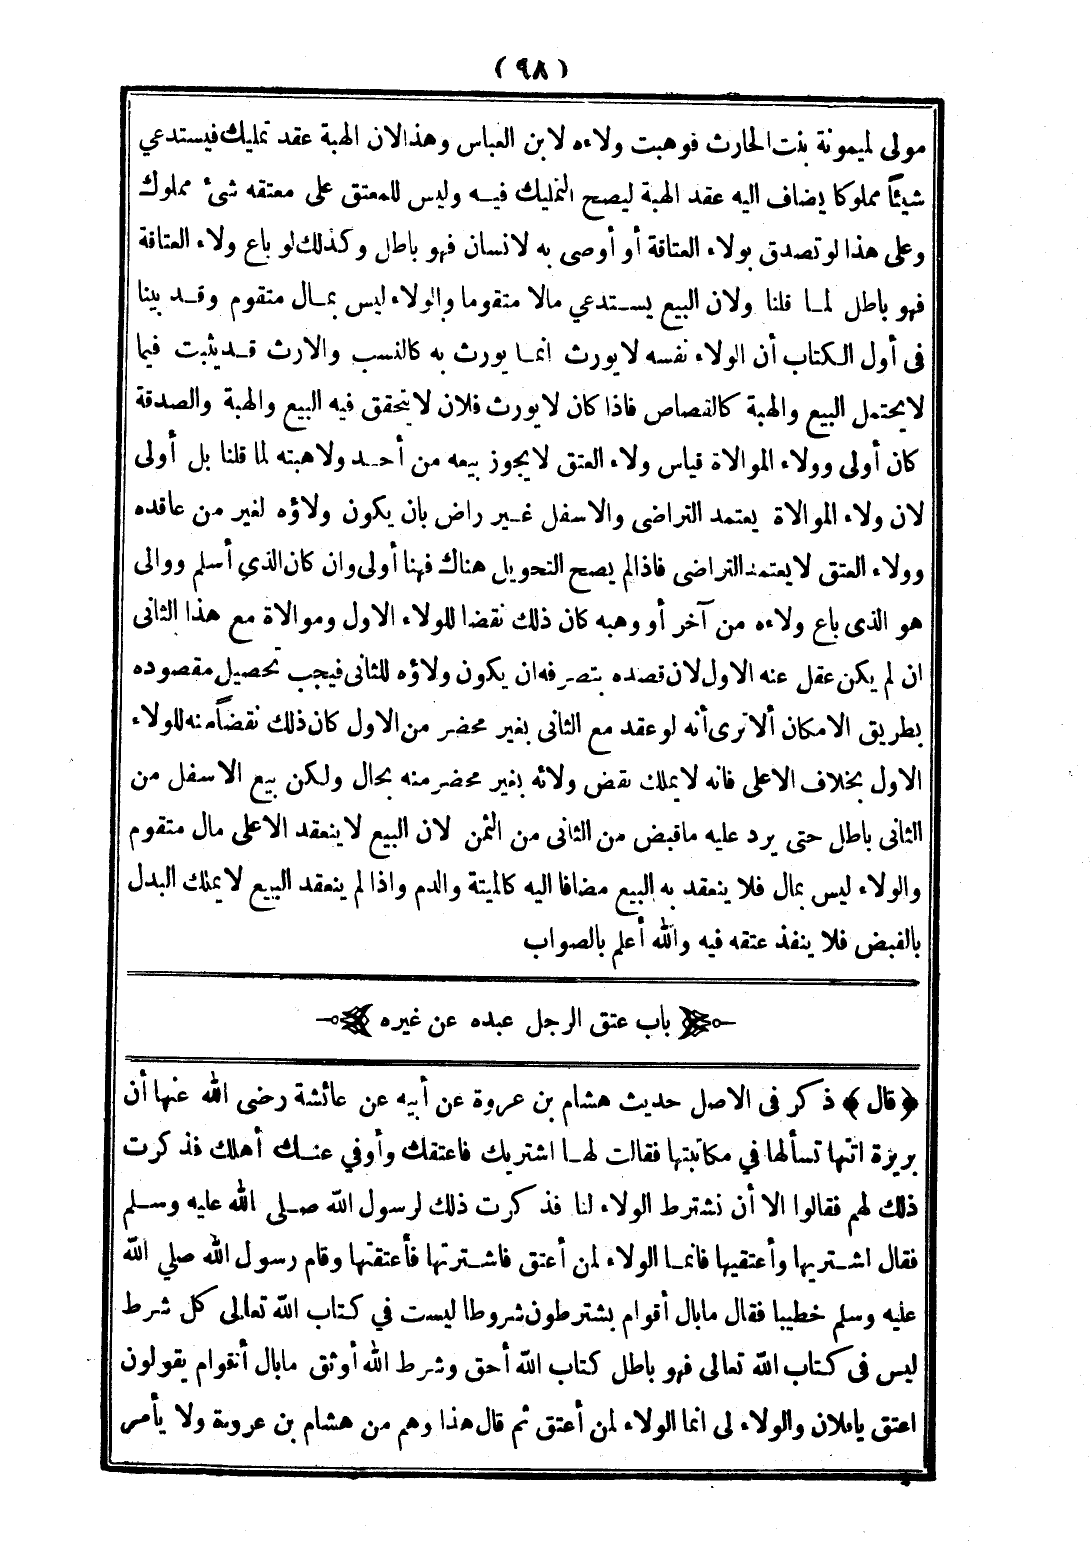 ( ٩٨ )
مولى لميمونة بنت الحارث فوهبت ولاءه لابن العباس وهذا لان الهبة عقد تمليك فيستدعي
شيئاً مملوكا يضاف اليه عقد الهبة ليصح التمليك فيه وليس للمعتق على معتقه شئ مملوك
وعلى هذا لو تصدق بولاء العتاقة أو أوصى به لانسان فهو باطل وكذلك لو باع ولاء العتاقة
فهو باطل لما قلنا ولان البيع يستدعي مالا متقوما والولاء ليس بمال متقوم وقد بينا
فى أول الكتاب أن الولاء نفسه لا يورث انما يورث به كالنسب والارث قد يثبت فيما
لا يحتمل البيع والهبة كالقصاص فاذا كان لا يورث فلان لا يتحقق فيه البيع والهبة والصدقة
كان أولى وولاء الموالاة قياس ولاء العتق لا يجوز بيعه من أحد ولا هبته لما قلنا بل أولى
لان ولاء الموالاة يعتمد التراضى والاسفل غير راض بان يكون ولاؤه لغير من عاقده
وولاء العتق لا يعتمد التراضى فاذا لم يصح التحويل هناك فهنا أولى وان كان الذي أسلم ووالى
هو الذى باع ولاءه من آخر أو وهبه كان ذلك نقضا للولاء الاول وموالاة مع هذا الثانى
ان لم يكن عقل عنه الاول لان قصده بتصرفه ان يكون ولاؤه للثانى فيجب تحصيل مقصوده
بطريق الامكان ألا ترى أنه لو عقد مع الثانى بغير محضر من الاول كان ذلك نقضاً منه للولاء
الاول بخلاف الاعلى فانه لا يملك نقض ولائه بغير محضر منه بحال ولكن بيع الاسفل من
الثانى باطل حتى يرد عليه ما قبض من الثانى من الثمن لان البيع لا ينعقد الا على مال متقوم
والولاء ليس بمال فلا ينعقد به البيع مضافا اليه كالميتة والدم واذا لم ينعقد البيع لا يملك البدل
بالقبض فلا ينفذ عتقه فيه والله أعلم بالصواب
باب عتق الرجل عبده عن غيره
﴿قال﴾ ذكر فى الاصل حديث هشام بن عروة عن أبيه عن عائشة رضى الله عنها أن
بريرة اتتها تسألها في مكاتبتها فقالت لها اشتريك فاعتقك وأوفي عنك أهلك فذكرت
ذلك لهم فقالوا الا أن نشترط الولاء لنا فذكرت ذلك لرسول الله صلى الله عليه وسلم
فقال اشتريها وأعتقيها فانما الولاء لمن أعتق فاشترتها فأعتقتها وقام رسول الله صلي الله
عليه وسلم خطيبا فقال ما بال أقوام يشترطون شروطا ليست في كتاب الله تعالى كل شرط
ليس فى كتاب الله تعالى فهو باطل كتاب الله أحق وشرط الله أوثق ما بال أقوام يقولون
اعتق يا فلان والولاء لى انما الولاء لمن أعتق ثم قال هذا وهم من هشام بن عروة ولا يأمر